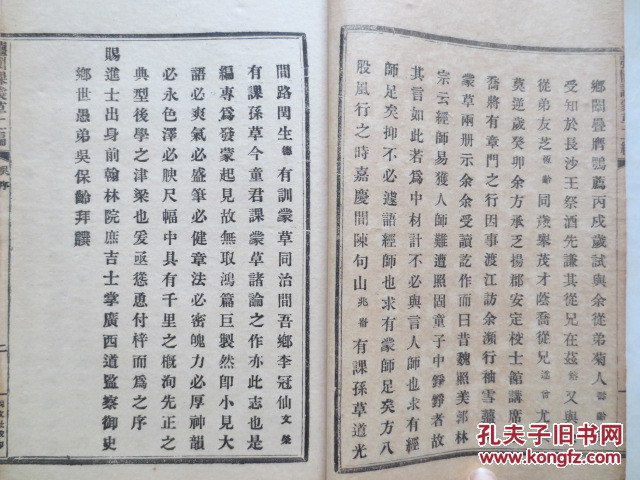 鄉闈疊膺鶚薦丙戌歲試與余從弟菊人
受知於長沙王祭酒先謙其從兄在茲 又與
從弟友芝 同歲舉茂才蔭喬從兄 尤
莫逆歲癸卯余方承乏揚郡安定校士館講席
喬將有章門之行因事渡江訪余瀕行袖雪
蒙草兩册示余余受讀訖作而曰昔魏照美郭林
宗云經師易獲人師難遭照固童子中錚錚者故
其言如此若為中材計不必與言人師也求有經
師足矣抑不必遽語經師也求有蒙師足矣方八
股風行之時嘉慶間陳句山兆崙有課孫草道光
間路閏生德有訓蒙草同治間吾鄉李冠仙文榮
有課孫草今童君課蒙草諸論之作亦此志也是
編專為發蒙起見故無取鴻篇巨製然即小見大
語必爽氣必盛筆必健章法必密魄力必厚神韻
必永色澤必腴尺幅中具有千里之概洵先正之
典型後學之津梁也爰亟慫恿付梓而為之序
賜進士出身前翰林院庶吉士掌廣西道監察御史
鄉世愚弟吳保齡拜譔
課蒙草二編
吳序
二
孔夫子旧书网
www.kongfz.com